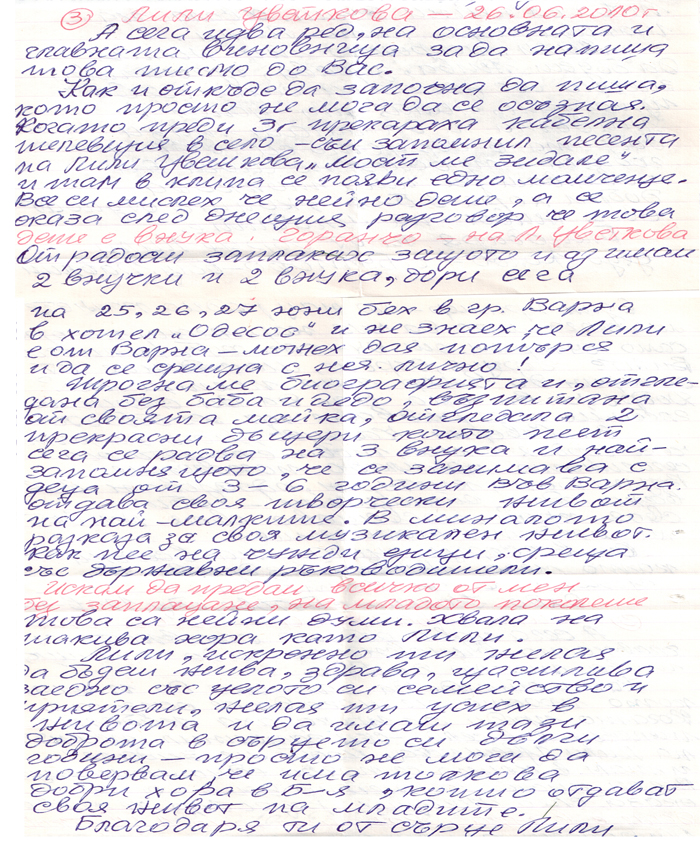 ③ Лили Цветкова – 26.06.2010 г.
А сега идва ред, на основната и
главната виновница за да напиша
това писмо до Вас.
Как и откъде да започна да пиша,
кото просто не мога да се осъзная.
Когато преди 3г прекараха кабелна
телевизия в село – съм запомнил песента
на Лили Цветкова „мост ме зидале"
и там в клипа се появи едно момченце.
Все си мислех че нейно дете, а се
оказа след днешния разговор че това
дете е внука. Горанчо – на Л. Цветкова
От радост заплаках защото и аз имам
2 внучки и 2 внука, дори сега
на 25, 26, 27 юни бях в гр. Варна
в хотел „Одесос" и не знаех, че Лили
е от Варна – можех да я потърся
и да се срещна с нея лично!
Трогна ме биографията и, отгле-
дана без баба и дедо, възпитана
от своята майка, отгледала 2
прекрасни дъщери които пеят
сега се радва на 3 внука и най-
запомнящото, че се занимава с
деца от 3 – 6 години във Варна.
отдава своя творчески живот
на най-малките. В миналото
разказа за своя музикален живот.
как пее на чужди езици, среща
със държавни ръководители.
Искам да предам всичко от мен
без заплащане, на младото поколение
това са нейни думи. Хвала на
такива хора като Лили.
Лили, искренно ти желая
да бъдеш жива, здрава, щастлива
заедно със целото си семейство и
приятели, желая ти успех в
живота и да имаш тази
доброта в сърцето си дълги
години – просто не мога да
повервам, че има толкова
добри хора в Б-я, които отдават
своя живот на младите.
Благодаря ти от сърце Лили